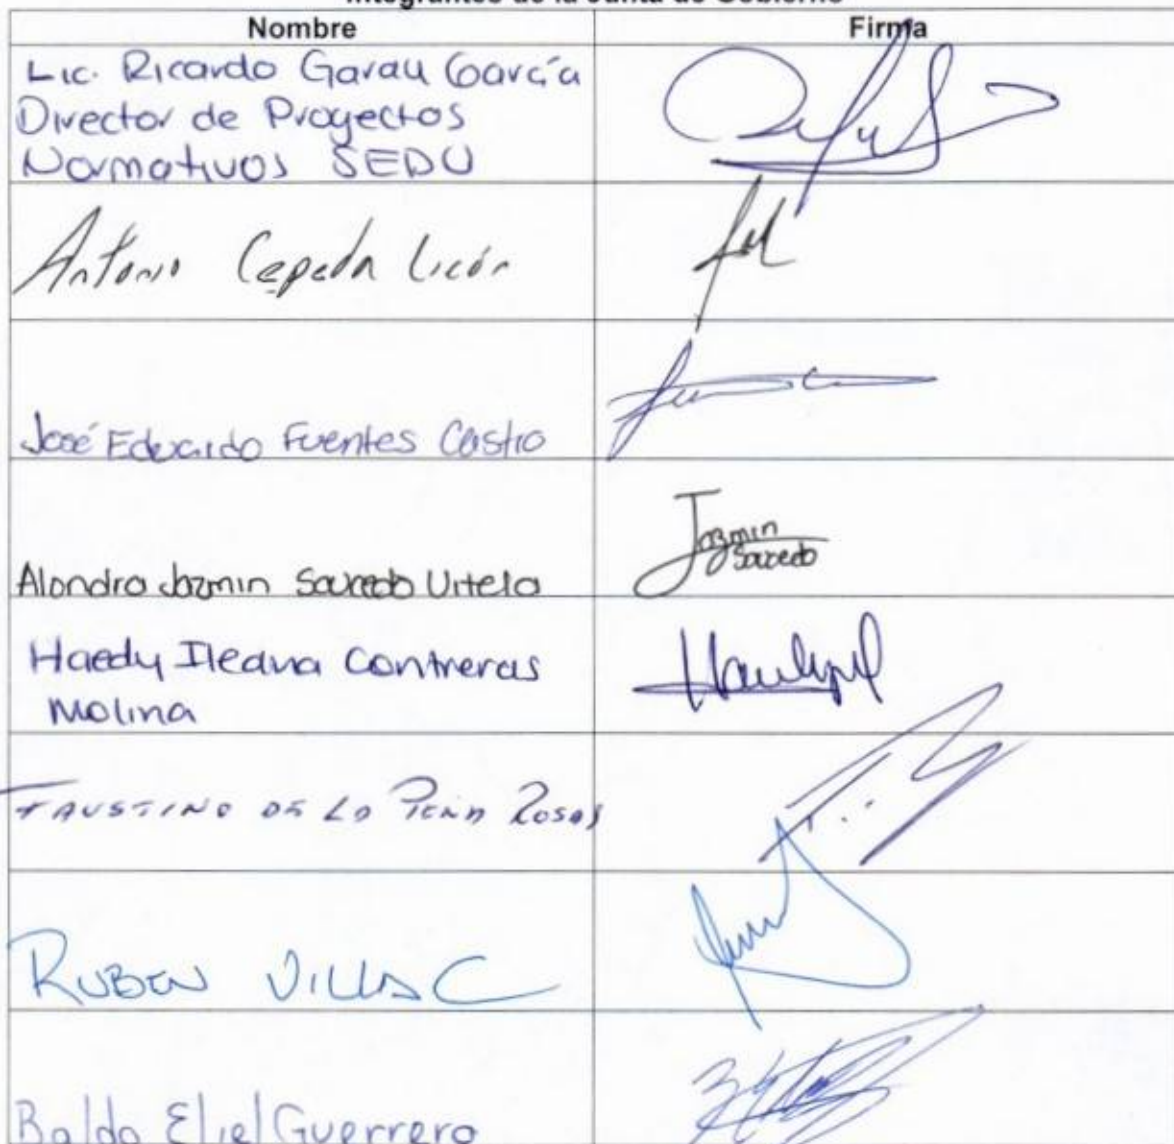 Integrantes de la Junta de Gobierno
Nombre Firma
Lic. Ricardo Garau García
Director de Proyectos
Normativos SEDU
Antonio Cepeda Licón
José Eduardo Fuentes Castro
Alondra Jazmin Saucedo Vitela
Jazmin
Saucedo
Haedy Ileana Contreras
Molina
FAUSTINO DE LA PEÑA ROSAS
RUBEN VILLA C
Baldo Eliel Guerrero